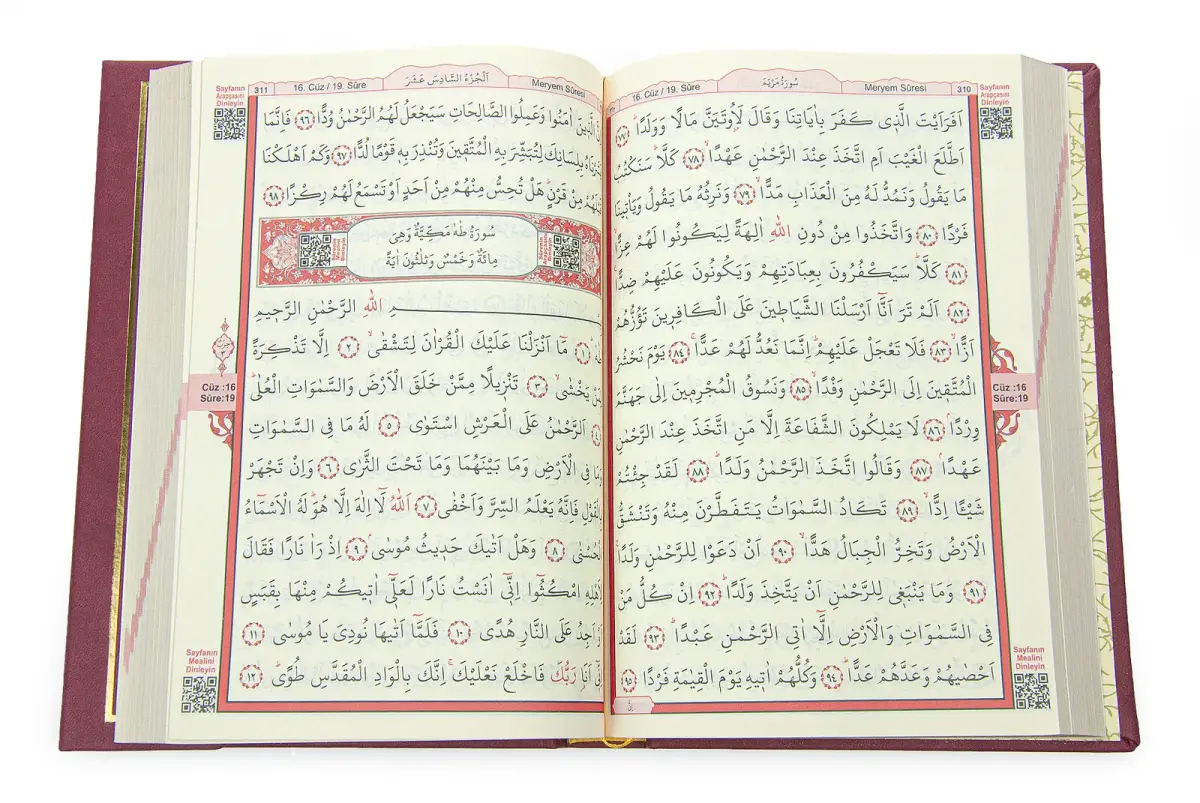 سُورَةُ مَرْيَمَ
16. Cüz / 19. Sûre
Meryem Sûresi
310
Sayfanın
Arapçasını
Dinleyin
اَفَرَاَيْتَ الَّذٖى كَفَرَ بِاٰيَاتِنَا وَقَالَ لَاُوتَيَنَّ مَالًا وَوَلَدًاؕ ﴿٧٧﴾
اَطَّلَعَ الْغَيْبَ اَمِ اتَّخَذَ عِنْدَ الرَّحْمٰنِ عَهْدًاۙ ﴿٧٨﴾ كَلَّاؕ سَنَكْتُبُ
مَا يَقُولُ وَنَمُدُّ لَهُ مِنَ الْعَذَابِ مَدًّاۙ ﴿٧٩﴾ وَنَرِثُهُ مَا يَقُولُ وَيَاْتٖينَا
فَرْدًا ﴿٨٠﴾ وَاتَّخَذُوا مِنْ دُونِ اللّٰهِ اٰلِهَةً لِيَكُونُوا لَهُمْ عِزًّاۙ
﴿٨١﴾ كَلَّاؕ سَيَكْفُرُونَ بِعِبَادَتِهِمْ وَيَكُونُونَ عَلَيْهِمْ ضِدًّا
﴿٨٢﴾ اَلَمْ تَرَ اَنَّٓا اَرْسَلْنَا الشَّيَاطٖينَ عَلَى الْكَافِرٖينَ تَؤُزُّهُمْ
اَزًّاۙ ﴿٨٣﴾ فَلَا تَعْجَلْ عَلَيْهِمْؕ اِنَّمَا نَعُدُّ لَهُمْ عَدًّاۚ ﴿٨٤﴾ يَوْمَ نَحْشُرُ
الْمُتَّقٖينَ اِلَى الرَّحْمٰنِ وَفْدًاۙ ﴿٨٥﴾ وَنَسُوقُ الْمُجْرِمٖينَ اِلٰى جَهَنَّمَ
وِرْدًاۘ ﴿٨٦﴾ لَا يَمْلِكُونَ الشَّفَاعَةَ اِلَّا مَنِ اتَّخَذَ عِنْدَ الرَّحْمٰنِ
عَهْدًاۘ ﴿٨٧﴾ وَقَالُوا اتَّخَذَ الرَّحْمٰنُ وَلَدًاؕ ﴿٨٨﴾ لَقَدْ جِئْتُمْ
شَيْـًٔا اِدًّاۙ ﴿٨٩﴾ تَكَادُ السَّمٰوَاتُ يَتَفَطَّرْنَ مِنْهُ وَتَنْشَقُّ
الْاَرْضُ وَتَخِرُّ الْجِبَالُ هَدًّاۙ ﴿٩٠﴾ اَنْ دَعَوْا لِلرَّحْمٰنِ وَلَدًاۚ
﴿٩١﴾ وَمَا يَنْبَغٖى لِلرَّحْمٰنِ اَنْ يَتَّخِذَ وَلَدًاؕ ﴿٩٢﴾ اِنْ كُلُّ مَنْ
فِى السَّمٰوَاتِ وَالْاَرْضِ اِلَّٓا اٰتِى الرَّحْمٰنِ عَبْدًاؕ ﴿٩٣﴾ لَقَدْ
اَحْصٰيهُمْ وَعَدَّهُمْ عَدًّاؕ ﴿٩٤﴾ وَكُلُّهُمْ اٰتٖيهِ يَوْمَ الْقِيٰمَةِ فَرْدًا ﴿٩٥﴾
Cüz :16
Sûre:19
Sayfanın
Mealini
Dinleyin
اَلْجُزْءُ السَّادِسَ عَشَرَ
311
16. Cüz / 19. Sûre
Meryem Sûresi
Sayfanın
Arapçasını
Dinleyin
الَّذٖينَ اٰمَنُوا وَعَمِلُوا الصَّالِحَاتِ سَيَجْعَلُ لَهُمُ الرَّحْمٰنُ وُدًّا ﴿٩٦﴾ فَاِنَّمَا
بِلِسَانِكَ لِتُبَشِّرَ بِهِ الْمُتَّقٖينَ وَتُنْذِرَ بِهٖ قَوْمًا لُدًّا ﴿٩٧﴾ وَكَمْ اَهْلَكْنَا
مِنْ قَرْنٍؕ هَلْ تُحِسُّ مِنْهُمْ مِنْ اَحَدٍ اَوْ تَسْمَعُ لَهُمْ رِكْزًا ﴿٩٨﴾
سُورَةُ طٰهٰ مَكِّيَّةٌ وَهِىَ
مِائَةٌ وَخَمْسٌ وَثَلٰثُونَ اٰيَةً
اللّٰهِ الرَّحْمٰنِ الرَّحٖيمِ
﴿١﴾ مَٓا اَنْزَلْنَا عَلَيْكَ الْقُرْاٰنَ لِتَشْقٰىۙ ﴿٢﴾ اِلَّا تَذْكِرَةً
يَخْشٰىۙ ﴿٣﴾ تَنْزٖيلًا مِمَّنْ خَلَقَ الْاَرْضَ وَالسَّمٰوَاتِ الْعُلٰىؕ
﴿٤﴾ اَلرَّحْمٰنُ عَلَى الْعَرْشِ اسْتَوٰى ﴿٥﴾ لَهُ مَا فِى السَّمٰوَاتِ
فِى الْاَرْضِ وَمَا بَيْنَهُمَا وَمَا تَحْتَ الثَّرٰى ﴿٦﴾ وَاِنْ تَجْهَرْ
فَاِنَّهُ يَعْلَمُ السِّرَّ وَاَخْفٰى ﴿٧﴾ اَللّٰهُ لَٓا اِلٰهَ اِلَّا هُوَؕ لَهُ الْاَسْمَٓاءُ
﴿٨﴾ وَهَلْ اَتٰيكَ حَدٖيثُ مُوسٰىۘ ﴿٩﴾ اِذْ رَاٰ نَارًا فَقَالَ
امْكُثُٓوا اِنّٖٓى اٰنَسْتُ نَارًا لَعَلّٖٓى اٰتٖيكُمْ مِنْهَا بِقَبَسٍ
اَجِدُ عَلَى النَّارِ هُدًى ﴿١٠﴾ فَلَمَّٓا اَتٰيهَا نُودِىَ يَا مُوسٰىؕ ﴿١١﴾
اَنَا۬ رَبُّكَ فَاخْلَعْ نَعْلَيْكَۚ اِنَّكَ بِالْوَادِ الْمُقَدَّسِ طُوًىؕ ﴿١٢﴾
Cüz :16
Sûre:19
Sayfanın
Mealini
Dinleyin